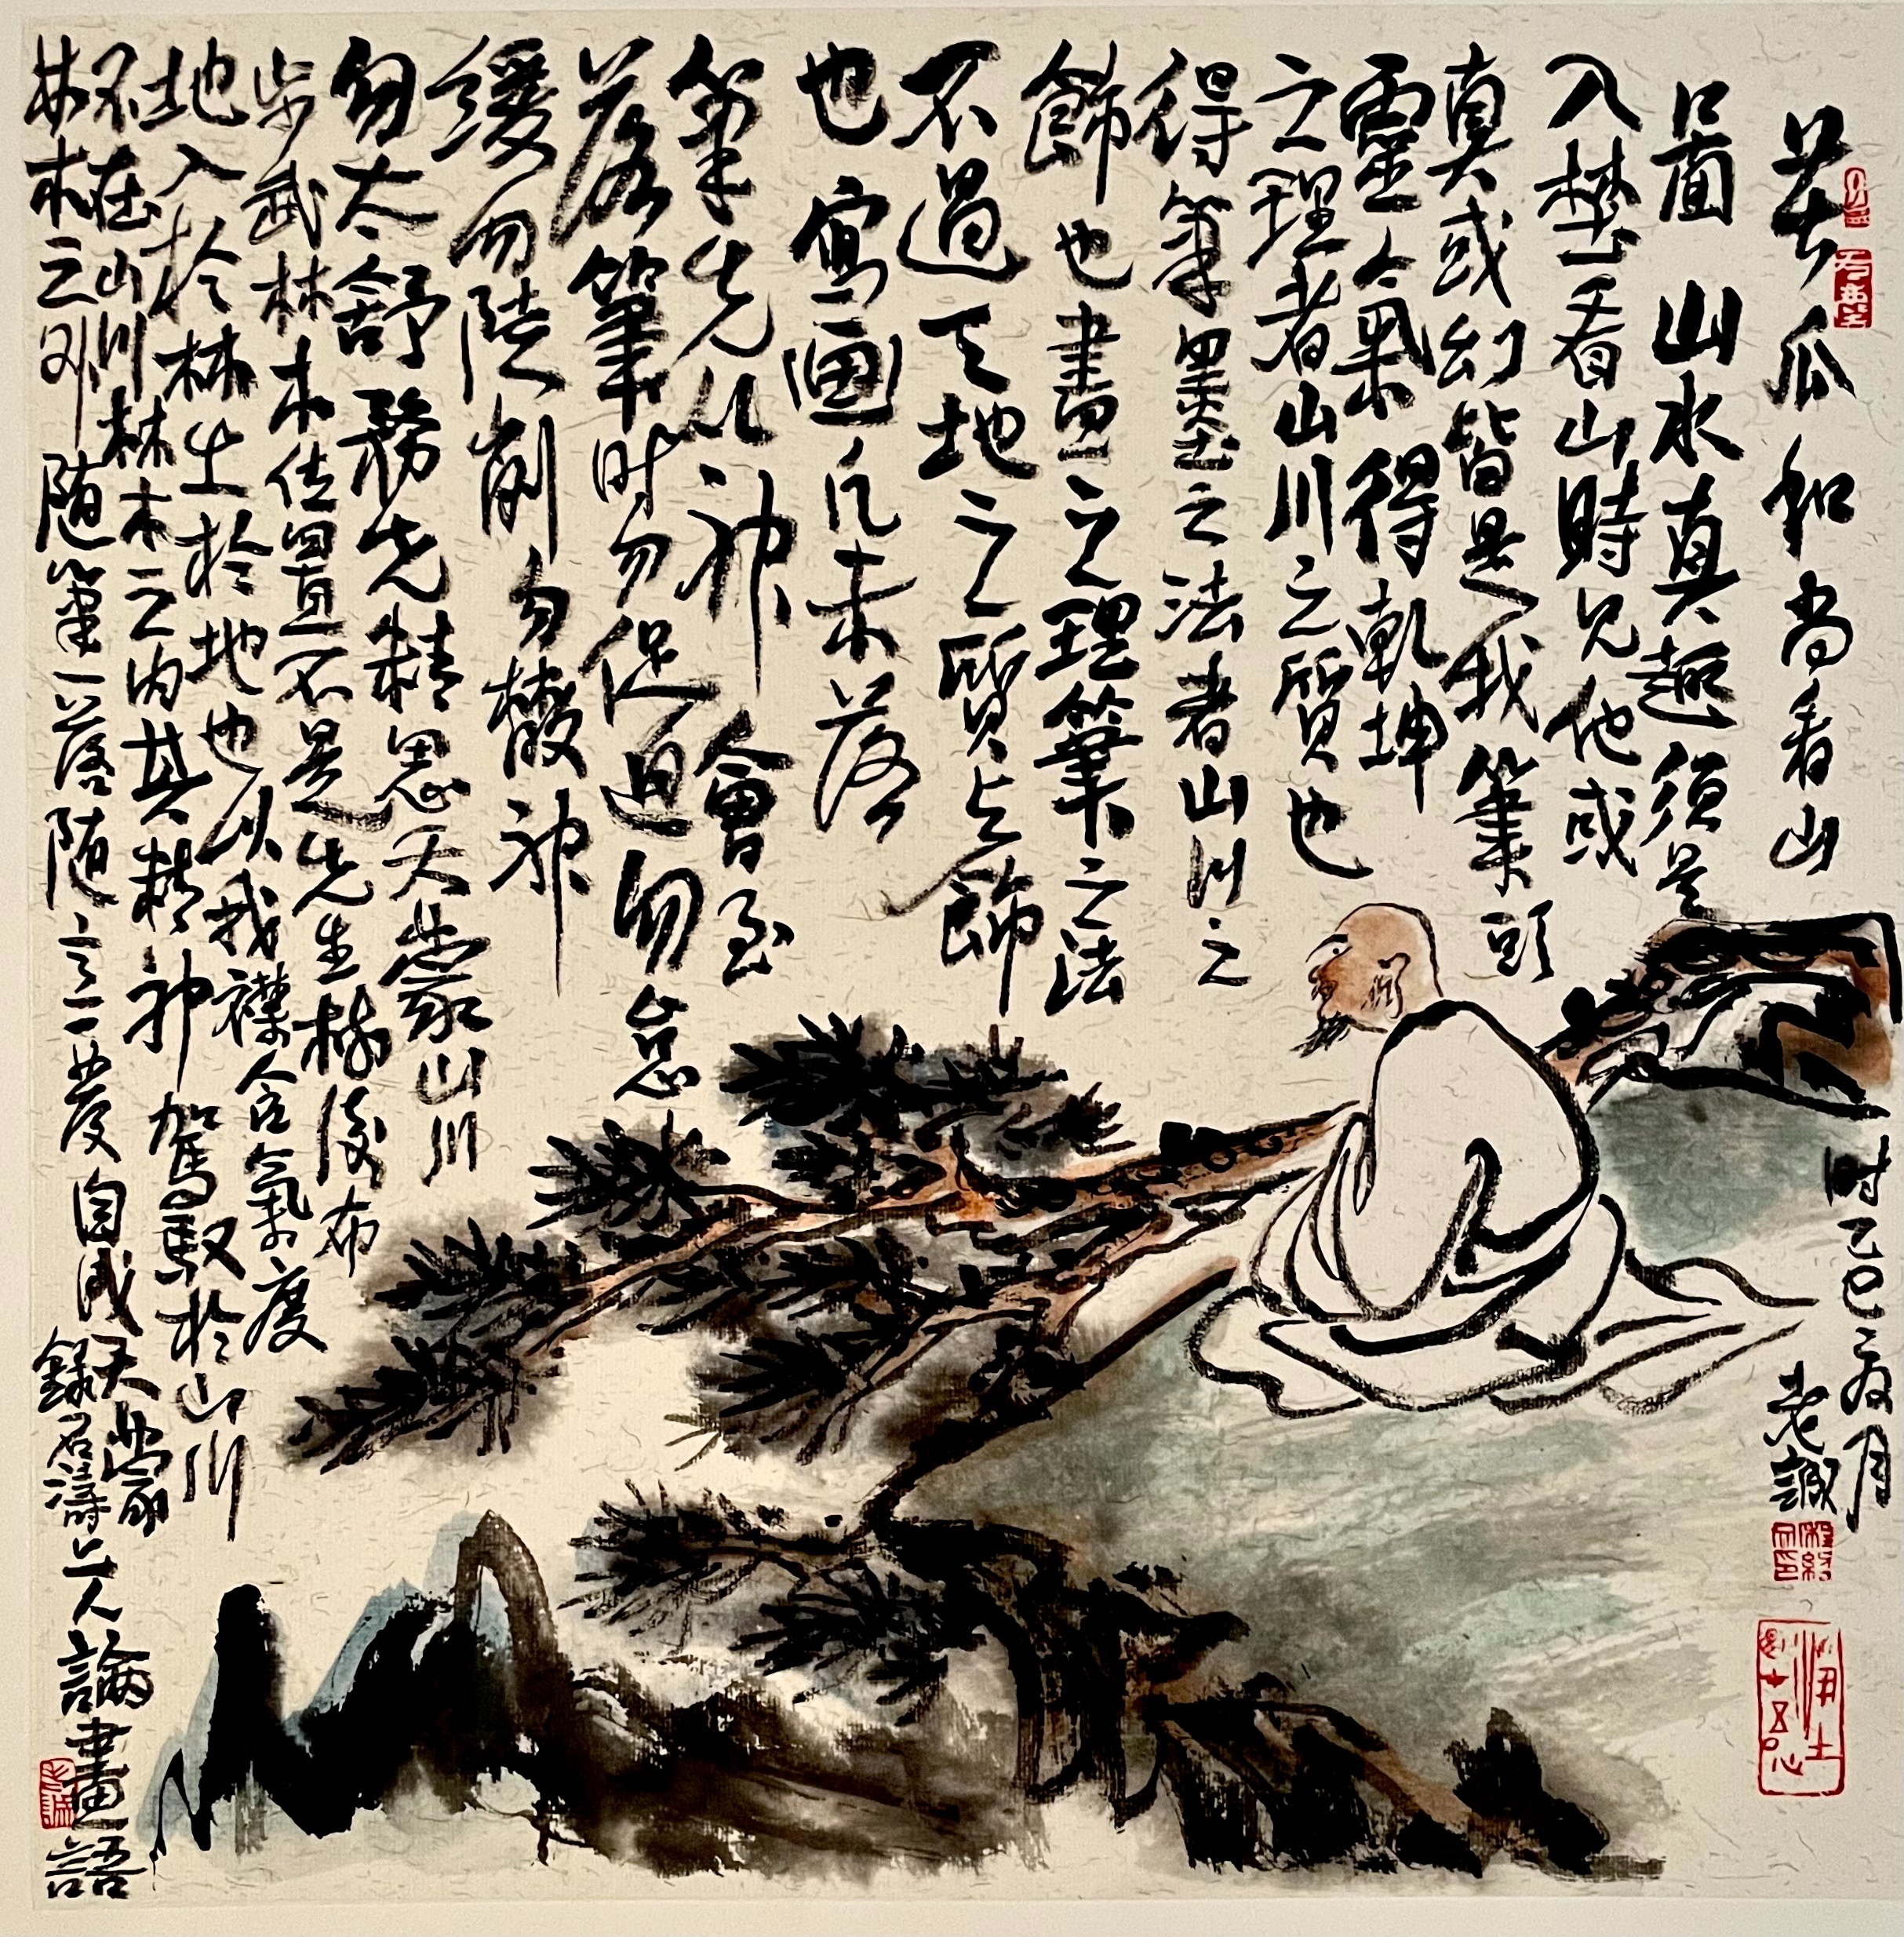 苦瓜和尚看山
圖 山水真趣須是
入埜看山時見他或
真或幻皆是我筆頭
靈氣 得乾坤
之理者山川之質也
得筆墨之法者山川之
飾也 畫之理筆之法
不過天地之質與飾
也 寫畫凡未落
筆先以神會至
落筆時勿促迫勿怠
緩勿陡削勿散神
勿太舒務先精思天蒙山川
步武林木位置不是先生樹後布
地入於林生於地也以我襟含氣度
不在山川林木之内其精神駕馭於山川
林木之外随筆一落随意一發自成天蒙
錄石濤上人論畫語
时乙巳 月
老誠